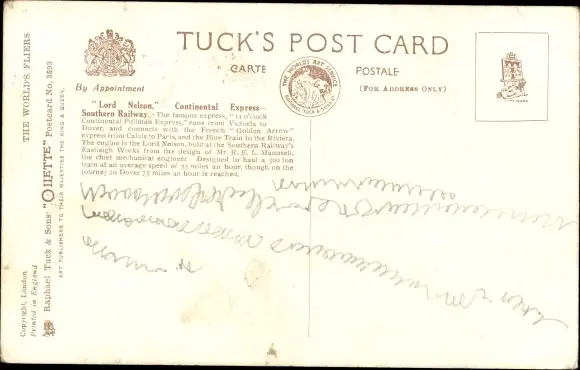 TUCK'S POST CARD
CARTE POSTALE
By Appointment
(FOR ADDRESS ONLY)
THE WORLD'S ART SERVICE
RAPHAEL TUCK & SONS LTD
"Lord Nelson," Continental Express—
Southern Railway. The famous express, "11 o'clock
Continental Pullman Express," runs from Victoria to
Dover, and connects with the French "Golden Arrow"
express from Calais to Paris, and the Blue Train to the Riviera.
The engine is the Lord Nelson, built at the Southern Railway's
Eastleigh Works from the design of Mr. R. E. L. Maunsell,
the chief mechanical engineer. Designed to haul a 500 ton
train at an average speed of 55 miles an hour, though on the
journey to Dover 75 miles an hour is reached.
THE WORLD'S FLIERS
Raphael Tuck & Sons' "OILETTE" Postcard No. 3693
ART PUBLISHERS TO THEIR MAJESTIES THE KING & QUEEN.
Copyright, London
Printed in England